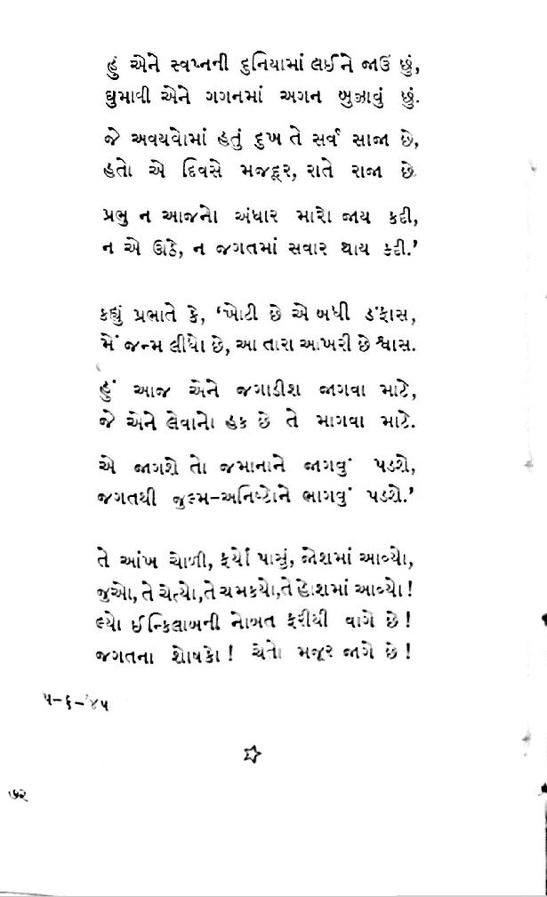 હું એને સ્વપ્નની દુનિયામાં લઈને જાઉં છું,
ઘુમાવી એને ગગનમાં અગન બુઝાવું છું.
જે અવયવોમાં હતું દુખ તે સર્વ સાજા છે,
હતો એ દિવસે મજદૂર, રાતે રાજા છે
પ્રભુ ન આજનો અંધાર મારો જાય કદી,
ન એ ઊઠે, ન જગતમાં સવાર થાય કદી.'
કહ્યું પ્રભાતે કે, 'ખોટી છે એ બધી ડંફાસ,
મેં જન્મ લીધો છે, આ તારા આખરી છે શ્વાસ.
હું આજ એને જગાડીશ જાગવા માટે,
જે એને લેવાનો હક છે તે માગવા માટે.
એ જાગશે તો જમાનાને જાગવું પડશે,
જગતથી જુલ્મ-અનિષ્ટોને ભાગવું પડશે.'
તે આંખ ચોળી, ફર્યો પાસું, જોશમાં આવ્યો,
જુઓ, તે ચેત્યો, તે ચમક્યો, તે હોશમાં આવ્યો !
લ્યો ઈન્કિલાબની નોબત ફરીથી વાગે છે !
જગતના શોષકો ! ચેતો મજૂર જાગે છે !
૫-૬-'૪૫
૭૨